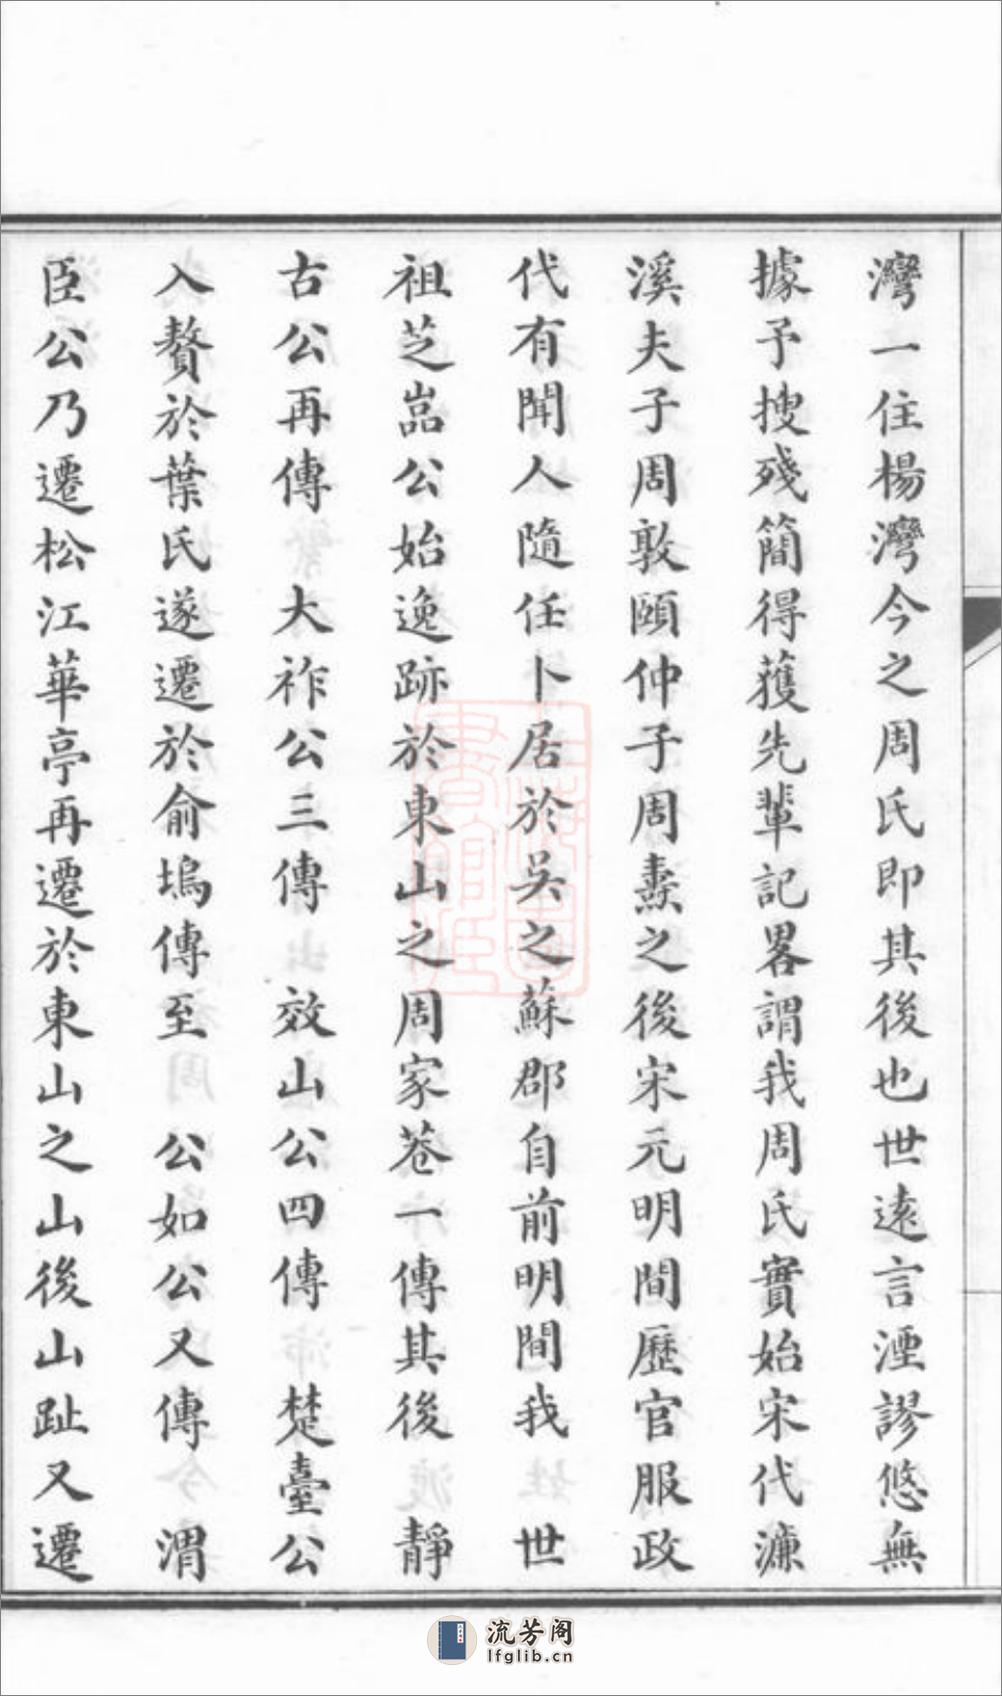 灣一住楊灣今之周氏即其後也世遠言湮謬悠無
據予搜殘簡得獲先輩記畧謂我周氏實始宋代濂
溪夫子周敦頤仲子周燾之後宋元明間歷官服政
代有聞人隨任卜居於吳之蘇郡自前明間我 世
祖芝嵓公始逸跡於東山之周家巷一傳其後 靜
古公再傳 大祚公三傳 效山公四傳 楚臺公
入贅於葉氏遂遷於俞塢傳至 公如公又傳 渭
臣公乃遷松江華亭再遷於東山之山後山趾又遷
流芳阁
lfglib.cn